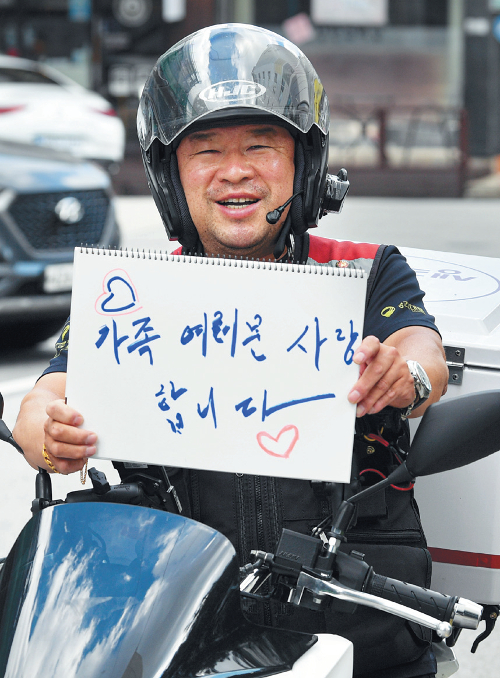 HJC
가족 여러분 사랑
합니다